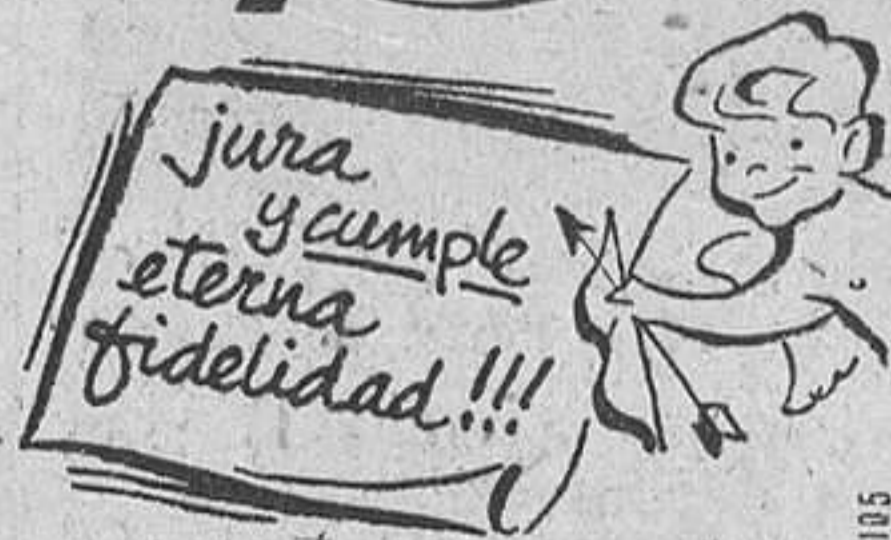 jura
y cumple
eterna
fidelidad!!!
105